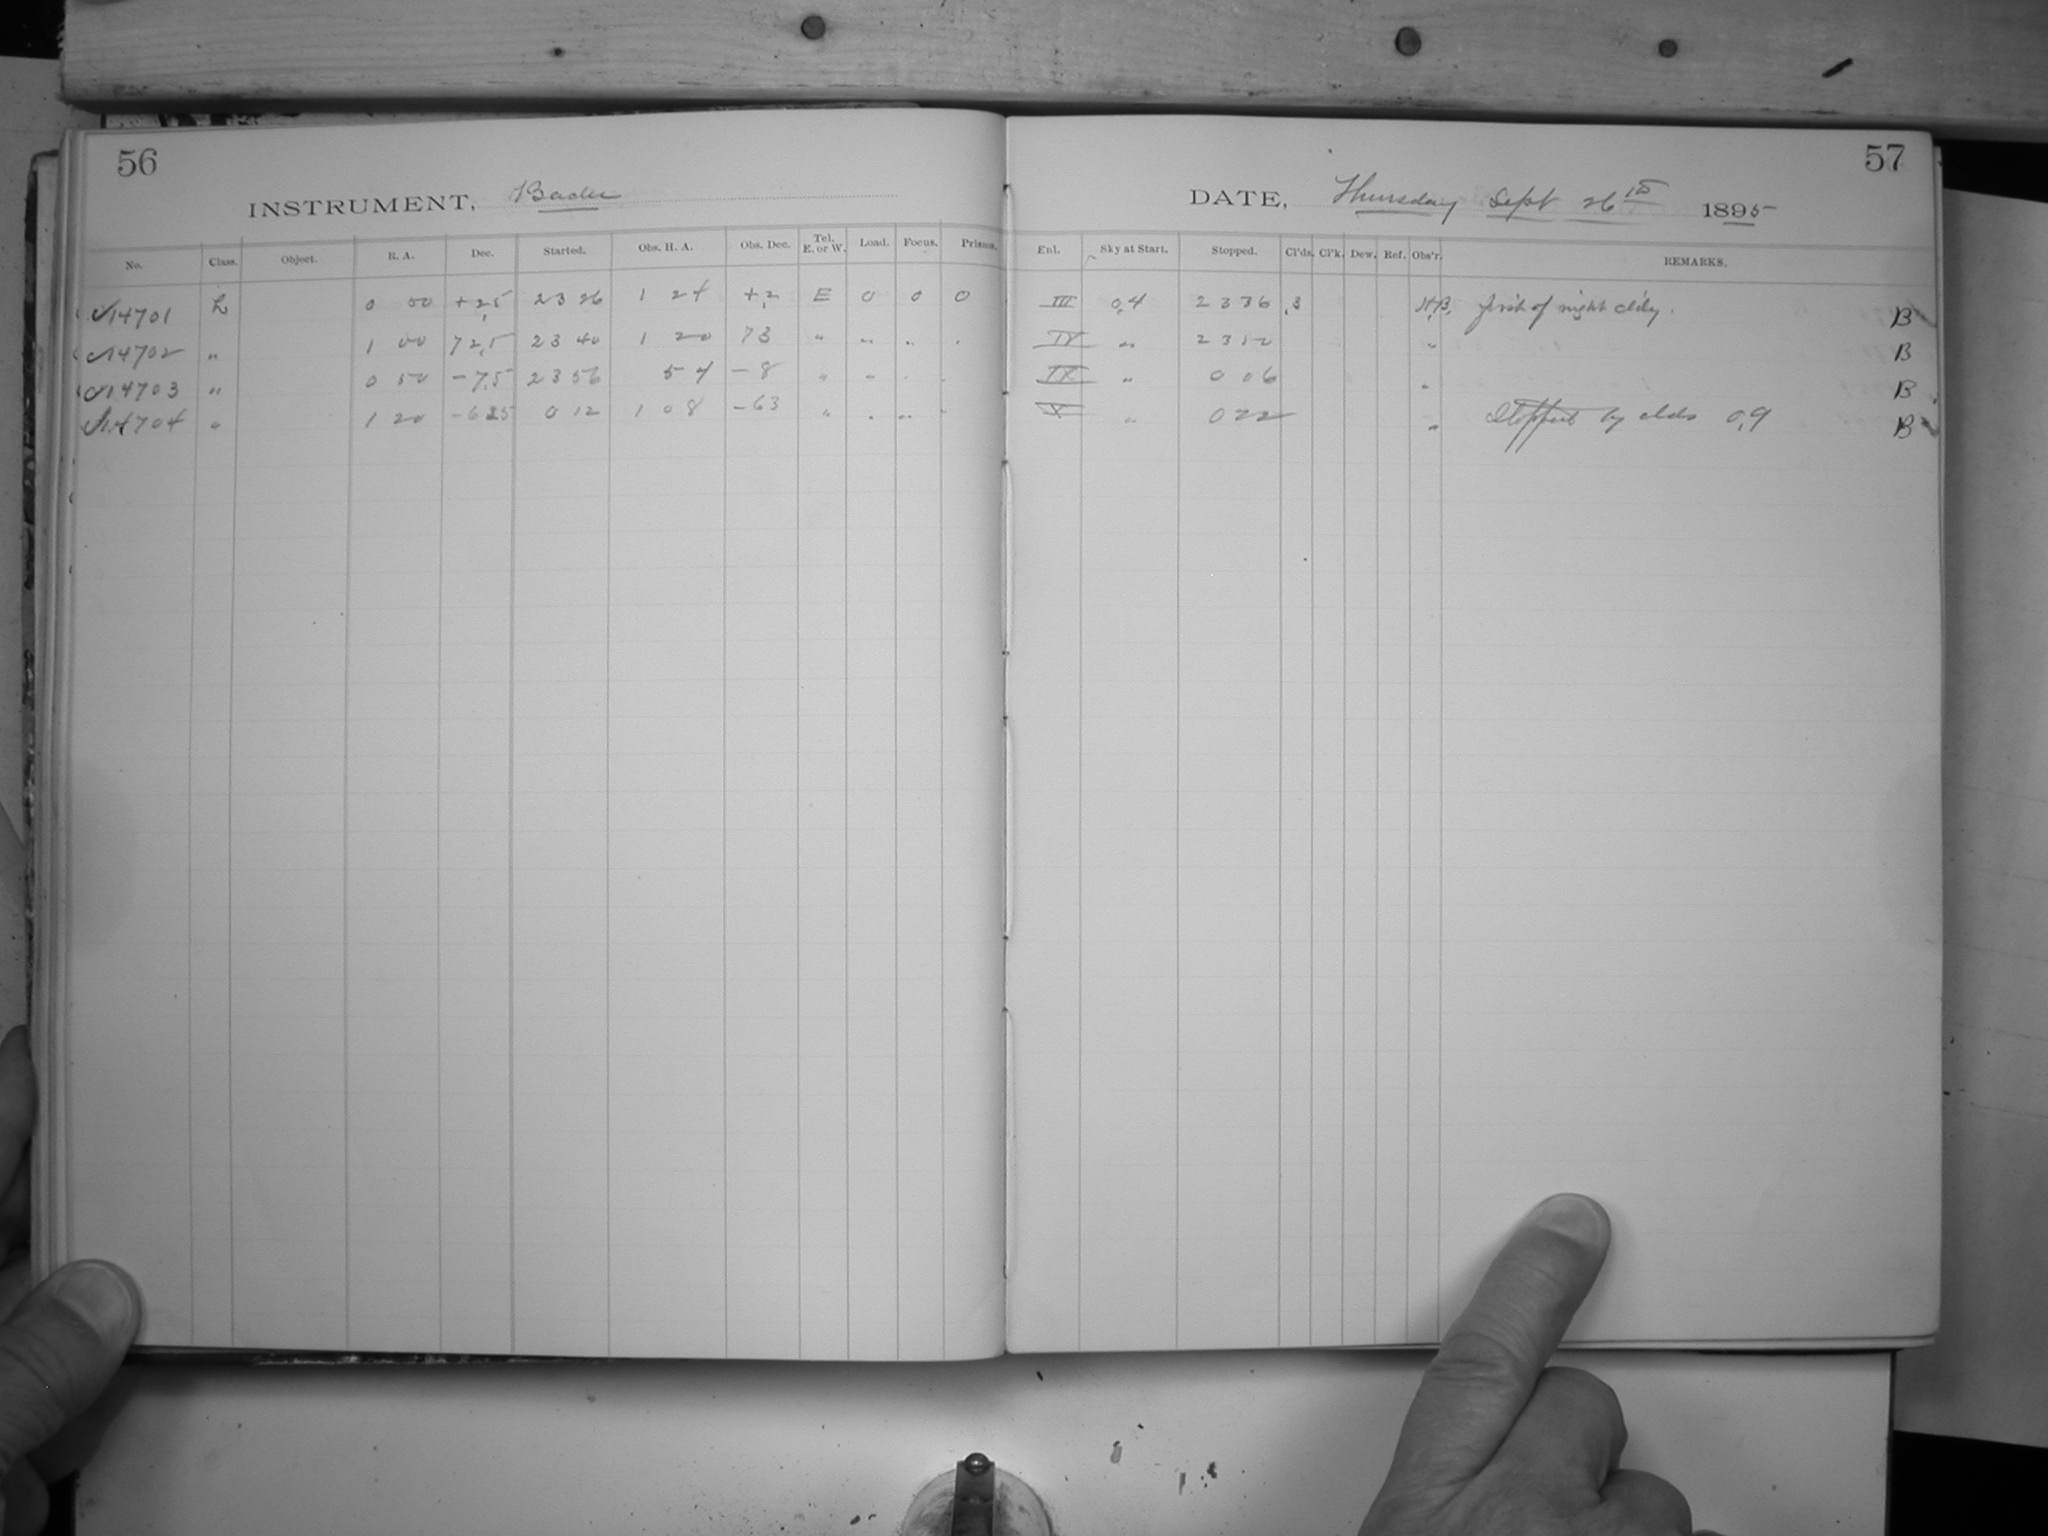 56
INSTRUMENT, Bache
No. Class. Object. R. A. Dec. Started. Obs. H. A. Obs. Dec. Tel. E. or W. Load. Focus. Prisms.
14701 L 0 00 +2,5 23 26 1 24 +,2 E 0 0 0
14702 " 1 00 72,5 23 40 1 20 73 " " " "
14703 " 0 50 -7,5 23 56 54 -8 " " " "
14704 " 1 20 -62,5 0 12 1 08 -63 " " " "
57
DATE, Thursday Sept 26th 1895
Enl. Sky at Start. Stopped. Cl'ds. Cl'k. Dew. Ref. Obs'r. REMARKS.
III 0,4 23 36 ,3 H,B, first of night cl'dy. B
IV " 23 52 " B
IX " 0 06 " B
X " 0 22 " Stopped by clds 0,9 B